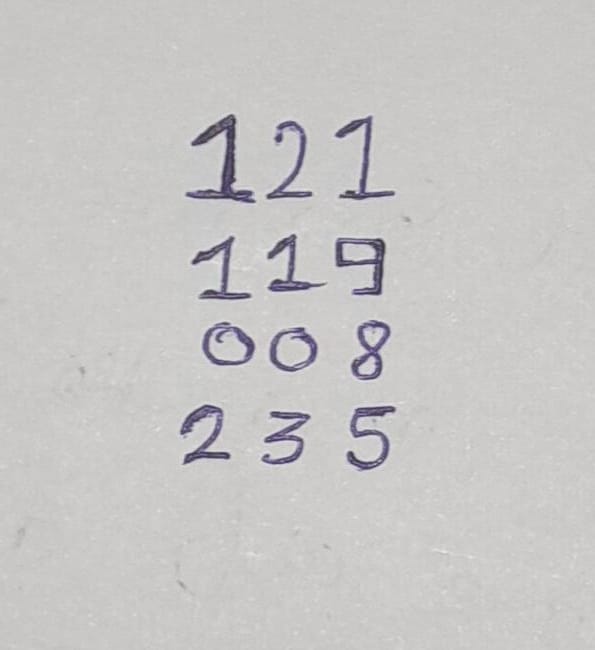 121
119
008
235